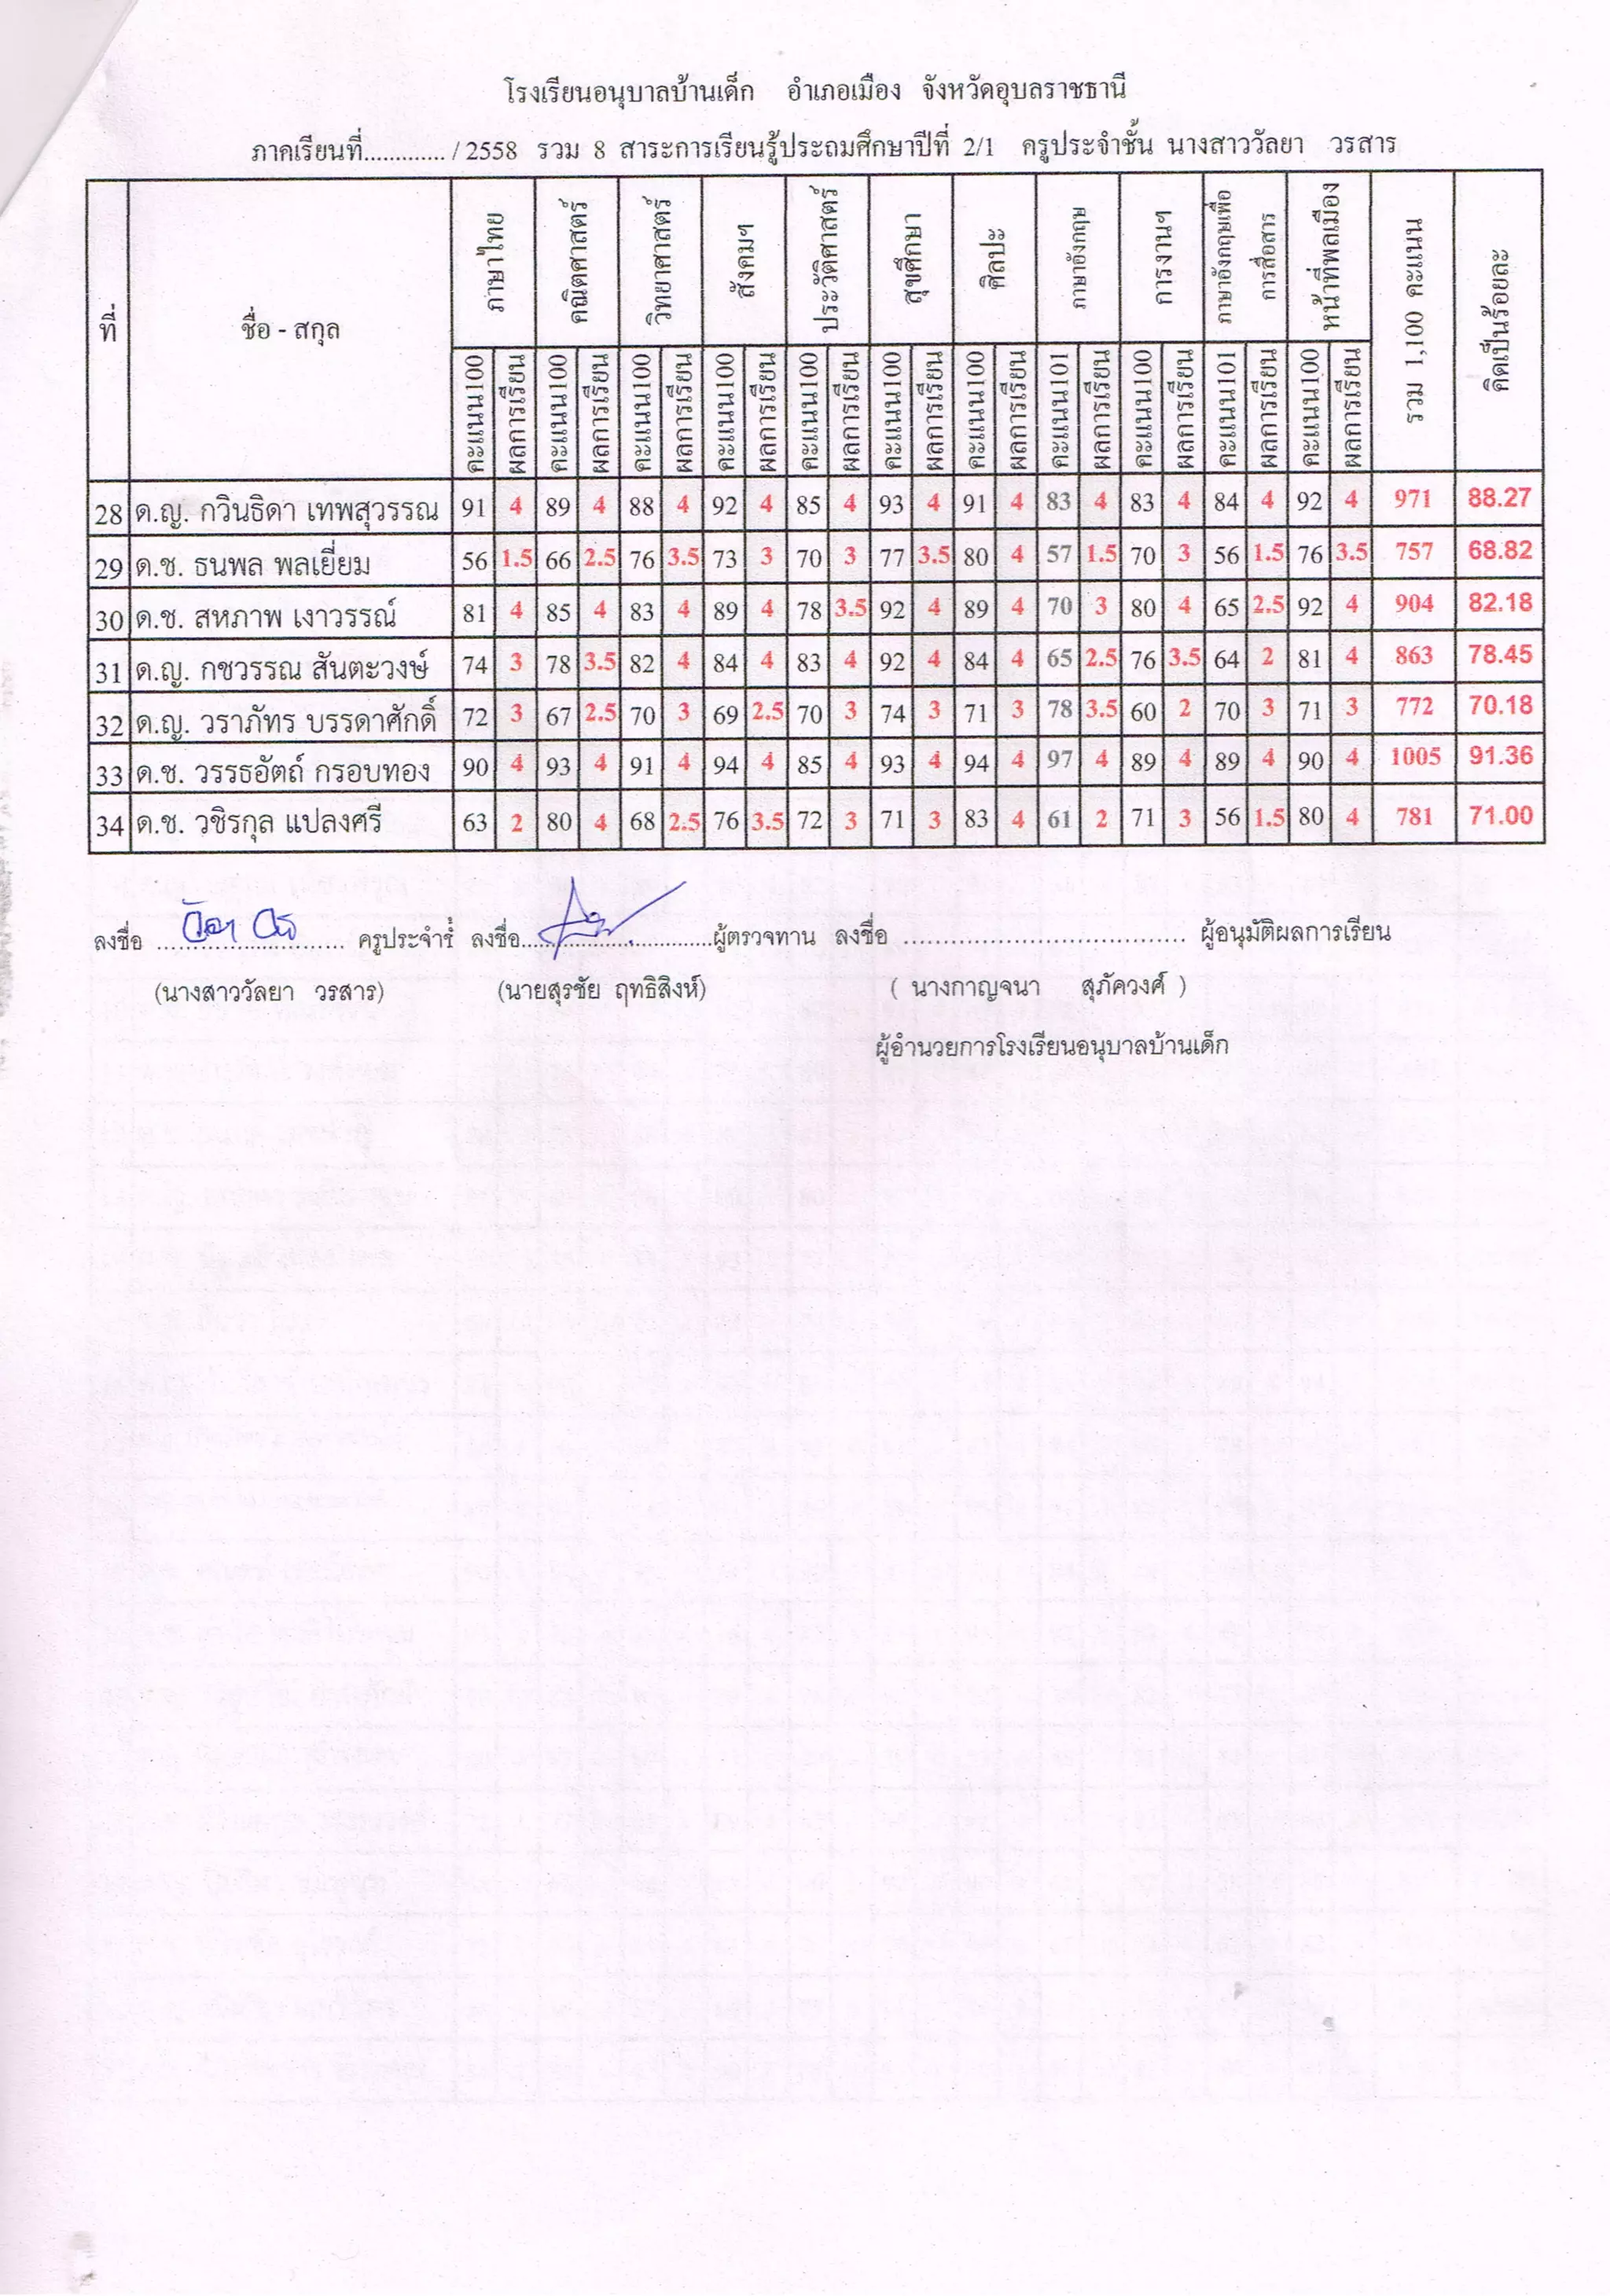 โรงเรียนอนุบาลบ้านเด็ก อำเภอเมือง จังหวัดอุบลราชธานี
ภาคเรียนที่............. / 2558 รวม 8 สาระการเรียนรู้ประถมศึกษาปีที่ 2/1 ครูประจำชั้น นางสาววัลยา วรสาร
ที่ ชื่อ - สกุล ภาษาไทย คณิตศาสตร์ วิทยาศาสตร์ สังคมฯ ประวัติศาสตร์ สุขศึกษา ศิลปะ ภาษาอังกฤษ การงานฯ ภาษาอังกฤษเพื่อ การสื่อสาร หน้าที่พลเมือง รวม 1,100 คะแนน คิดเป็นร้อยละ
คะแนน100 ผลการเรียน คะแนน100 ผลการเรียน คะแนน100 ผลการเรียน คะแนน100 ผลการเรียน คะแนน100 ผลการเรียน คะแนน100 ผลการเรียน คะแนน100 ผลการเรียน คะแนน101 ผลการเรียน คะแนน100 ผลการเรียน คะแนน101 ผลการเรียน คะแนน100 ผลการเรียน
28 ด.ญ. กวินธิดา เทพสุวรรณ 91 4 89 4 88 4 92 4 85 4 93 4 91 4 83 4 83 4 84 4 92 4 971 88.27
29 ด.ช. ธนพล พลเยี่ยม 56 1.5 66 2.5 76 3.5 73 3 70 3 77 3.5 80 4 57 1.5 70 3 56 1.5 76 3.5 757 68.82
30 ด.ช. สหภาพ เงาวรรณ์ 81 4 85 4 83 4 89 4 78 3.5 92 4 89 4 70 3 80 4 65 2.5 92 4 904 82.18
31 ด.ญ. กชวรรณ สันตะวงษ์ 74 3 78 3.5 82 4 84 4 83 4 92 4 84 4 65 2.5 76 3.5 64 2 81 4 863 78.45
32 ด.ญ. วราภัทร บรรดาศักดิ์ 72 3 67 2.5 70 3 69 2.5 70 3 74 3 71 3 78 3.5 60 2 70 3 71 3 772 70.18
33 ด.ช. วรรธอัตถ์ กรอบทอง 90 4 93 4 91 4 94 4 85 4 93 4 94 4 97 4 89 4 89 4 90 4 1005 91.36
34 ด.ช. วชิรกุล แปลงศรี 63 2 80 4 68 2.5 76 3.5 72 3 71 3 83 4 61 2 71 3 56 1.5 80 4 781 71.00
ลงชื่อ ........................... ครูประจำชั้ ลงชื่อ...........................ผู้ตรวจทาน ลงชื่อ ................................... ผู้อนุมัติผลการเรียน
(นางสาววัลยา วรสาร) (นายสุรชัย ฤทธิสิงห์) ( นางกาญจนา สุภัควงศ์ )
ผู้อำนวยการโรงเรียนอนุบาลบ้านเด็ก